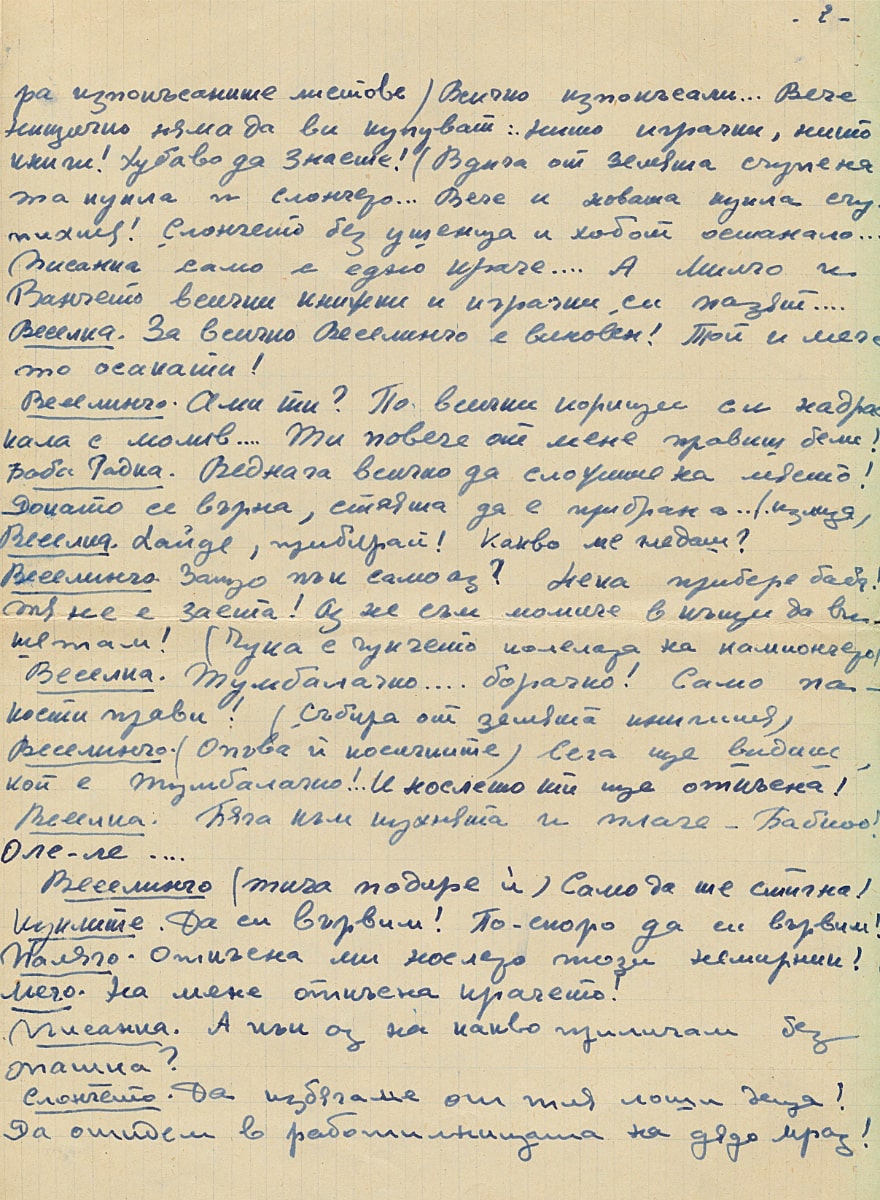 - 2 -
ра изпокъсаните листове) Всичко изпокъсали... Вече
нищичко няма да ви купуват: нито играчки, нито
книги! Хубаво да знаете! (Вдига от земята счупена
та кукла и слончето... Вече и новата кукла счу
пихте! Слончето без ушенца и хобот останало...
Писанка само с едно краче.... А Милчо и
Ванчето всички книжки и играчки си пазят....
Веселка. За всичко Веселинчо е виновен! Той и мече
то осакати!
Веселинчо. Ами ти? По всички корици си надрас
кала с молив.... Ти повече от мене правиш бели!
Баба Радка. Веднага всичко да сложите на място!
Докато се върна, стаята да е прибрана..(излиза,
Веселка. Хайде, прибирай! Какво ме гледаш?
Веселинчо. Защо пък само аз? Нека прибере баба!
Тя не е заета! Аз не съм момиче в къщи да ви
шетам! (Чука с чукчето колелата на камиончето)
Веселка. Тумбалачко.... борачко! Само па-
кости прави! (Събира от земята книгите)
Веселинчо. (Опъва ѝ косичките) Сега ще видиш
кой е тумбалачко!.. И нослето ти ще откъсна!
Веселка. Бяга към кухнята и плаче - Бабооо!
Оле-ле ....
Веселинчо (тича подире ѝ) Само да те стигна!
Куклите. Да си вървим! По-скоро да си вървим!
Палячо. Откъсна ми нослето този немирник!
Мечо. На мене откъсна крачето!
Писанка. А пък аз на какво приличам без
опашка?
Слончето. Да избягаме от тия лоши деца!
Да отидем в работилницата на дядо мраз!